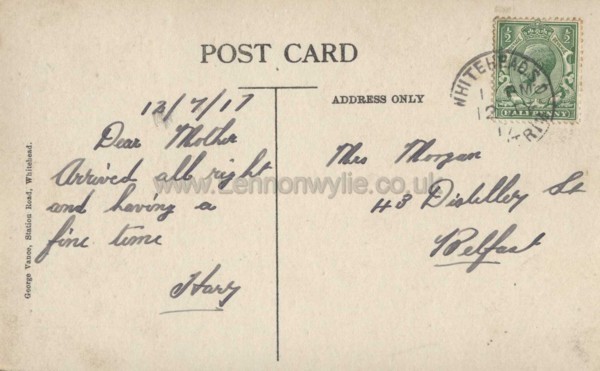 POST CARD
ADDRESS ONLY
12/7/17
Dear Mother
Arrived all right
and having a
fine time
Harry
Mrs Morgan
43 Distillery St
Belfast
WHITEHEAD S.O.
HALFPENNY
George Vance, Station Road, Whitehead.
www.Lennonwylie.co.uk